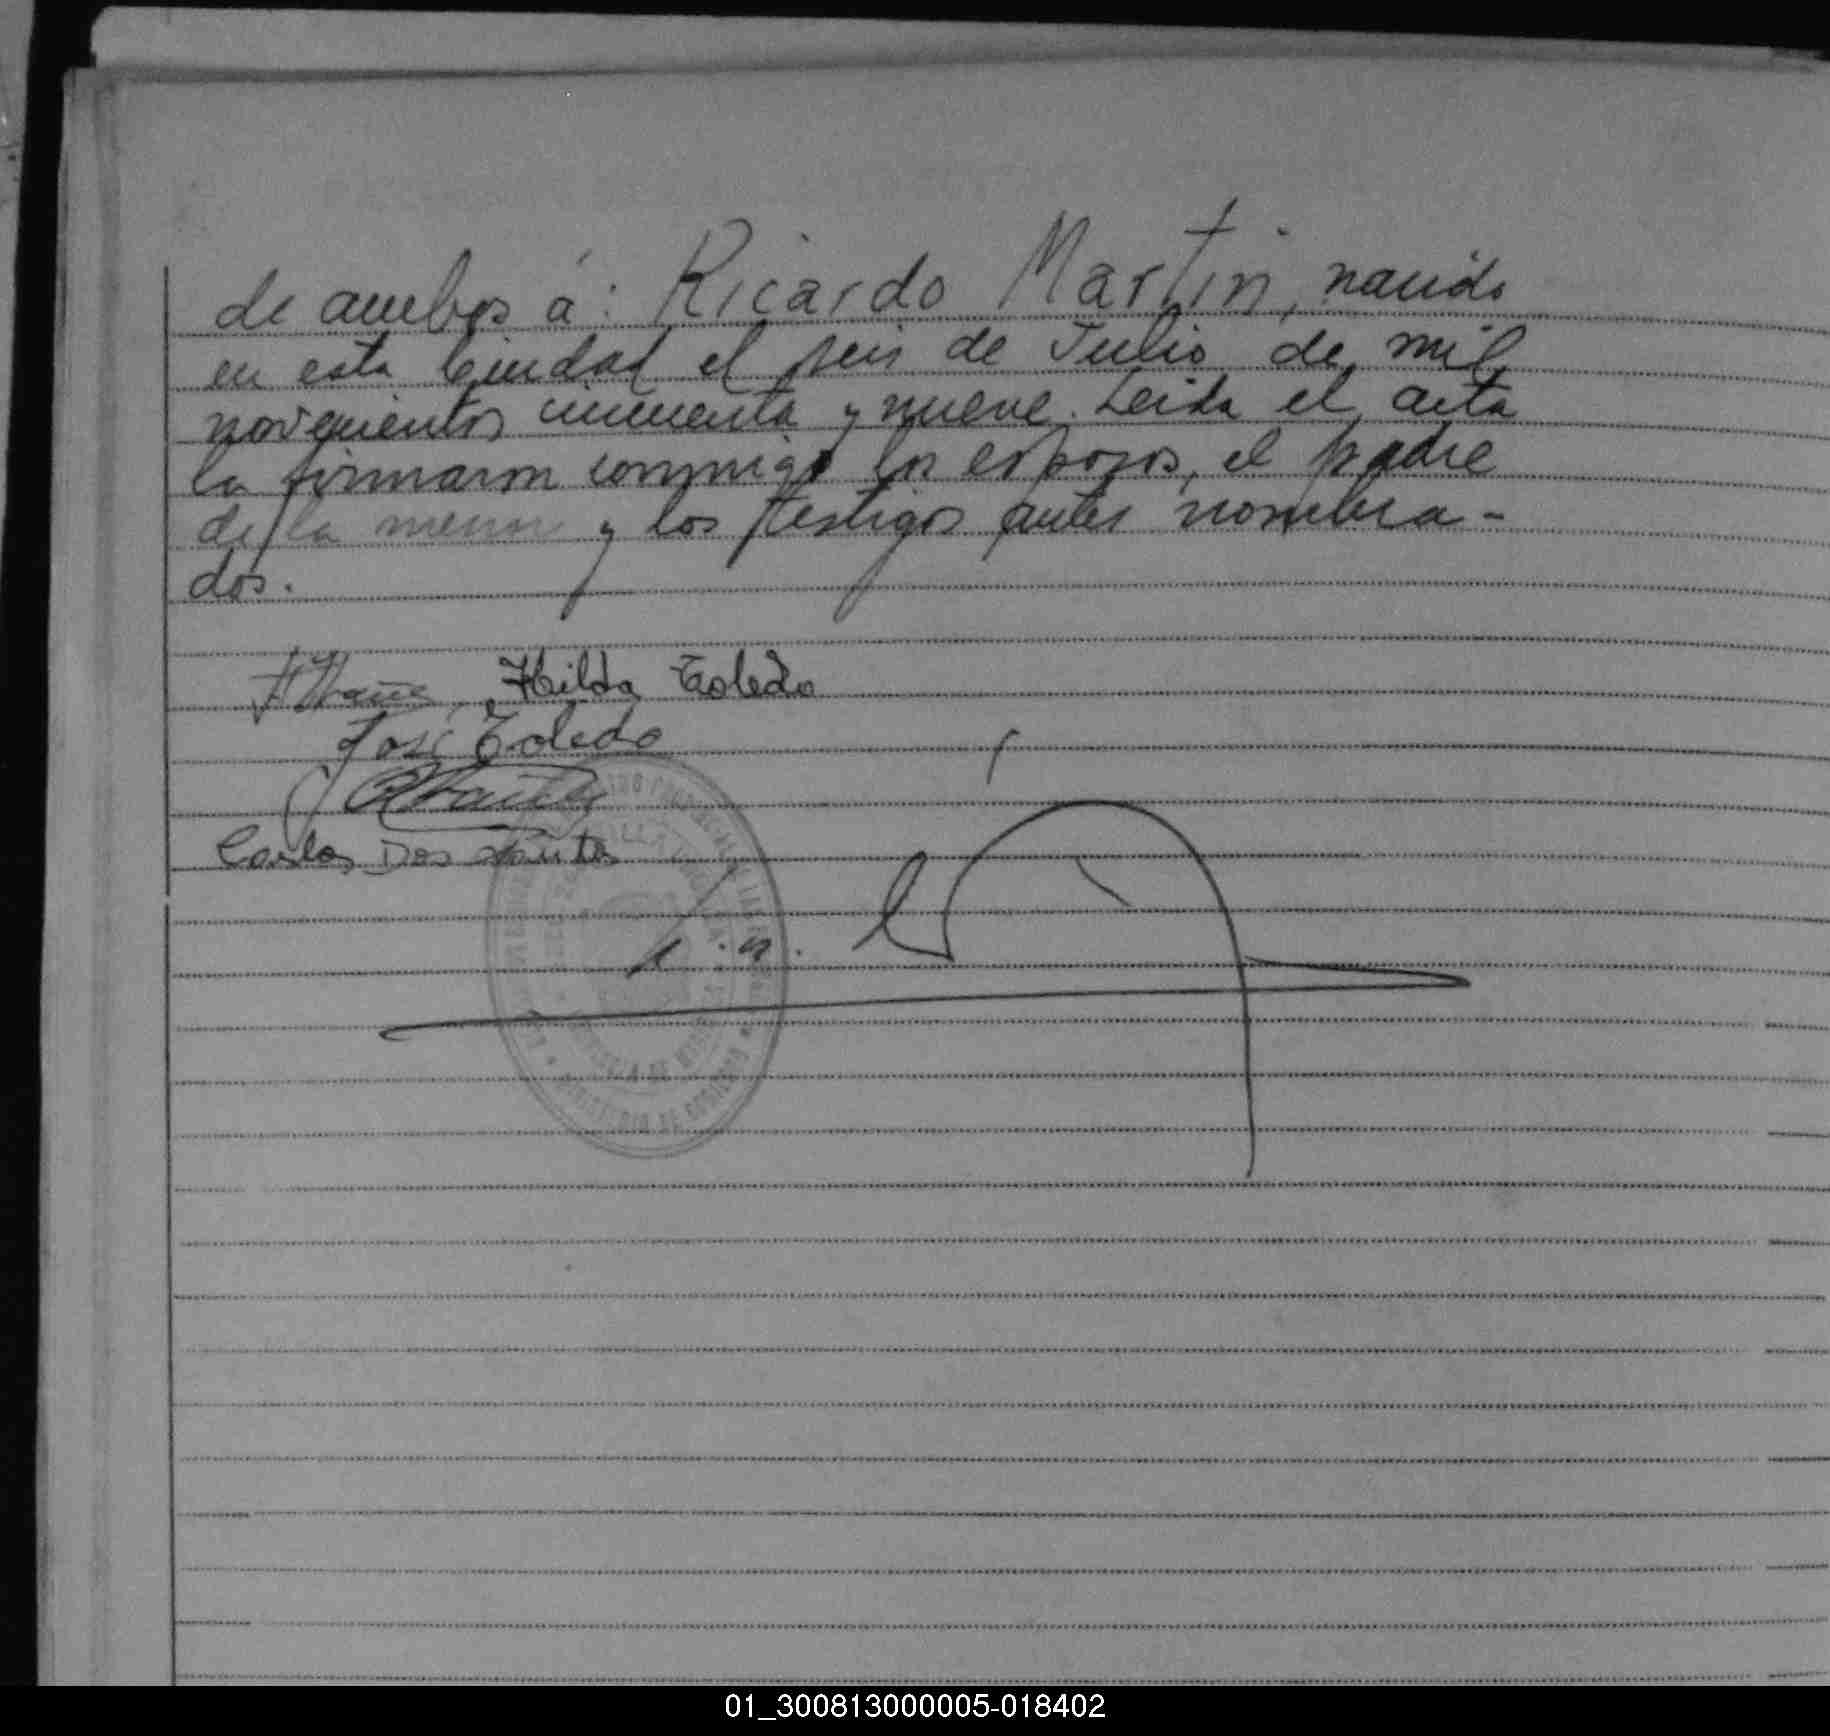 de ambos á: Ricardo Martin, nacido
en esta Ciudad el seis de Julio de mil
novecientos cincuenta y nueve. Leida el acta
la firmaron conmigo los esposos, el padre
de la menor y los testigos antes nombra-
dos.
Hilda Toledo
José Toledo
Carlos Dos Santos
01_300813000005-018402